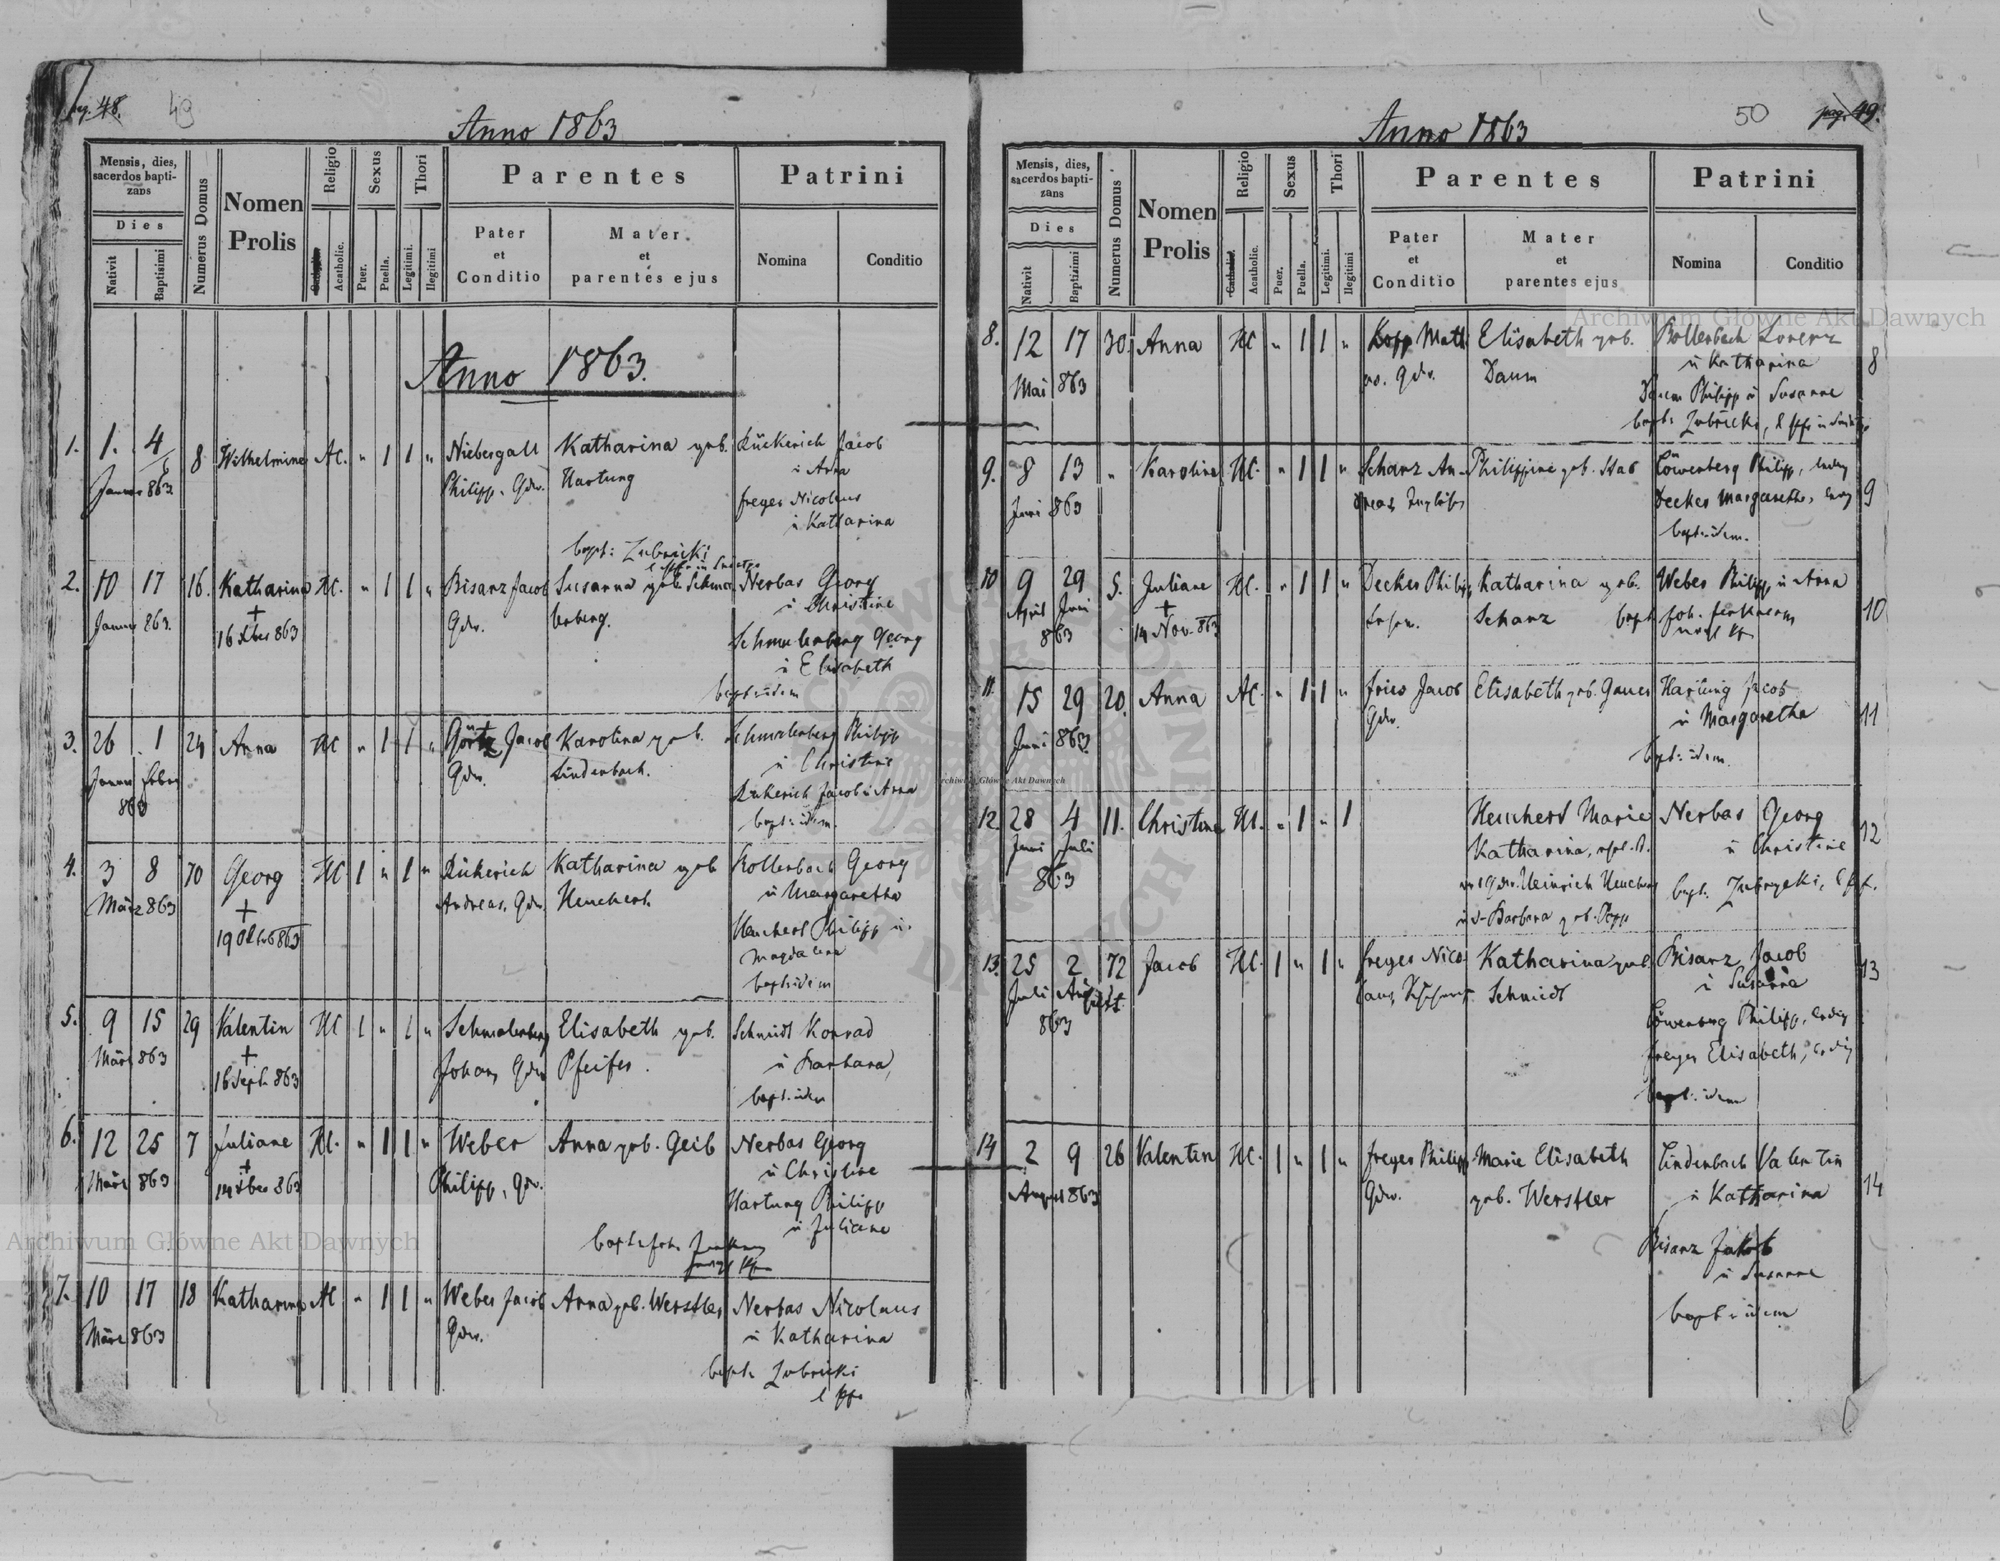 pag. 48.
49
Anno 1863
Mensis, dies, sacerdos baptizans
Dies
Nativit
Baptisimi
Numerus Domus
Nomen Prolis
Religio
Acatholic.
Sexus
Puer.
Puella.
Thori
Legitimi.
Illegitimi
Parentes
Pater et Conditio
Mater et parentes ejus
Patrini
Nomina
Conditio
Anno 1863.
1. 1. 4 8 Wilhelmine Ac. " 1 1 " Niebergall Katharina geb. Lückerich Jacob
Januar 863 Philipp. Gdw. Hartung u Anna
Freyer Nicolaus
u Katharina
bapt: Zubricki
2. 10 17 16. Katharina Ac. " 1 1 " Bisanz Jacob Susanna geb. Schmalenberg. Nerbas Georg
Januar 863. † Gdw. u Christine
16 Xber 863
Schmalenberg Georg
u Elisabeth
bapt idem
3. 26 1 24 Anna Ac " 1 1 " Görtz Jacob Karolina geb. Schmalenberg Philipp
Januar Febr 863 Gdw. Lindenbach. u Christine
Lückerich Jacob u Anna
bapt. idem.
4. 3 8 70 Georg Ac 1 " 1 " Lückerich Katharina geb Rollerbach Georg
März 863 † Andreas, Gdw. Heuchert. u Margaretha
19 Okt. 863
Heuchert Philipp u.
Magdalena
bapt idem
5. 9 15 29 Valentin Ac 1 " 1 " Schmalenberg Elisabeth geb. Schmidt Konrad
März 863 † Johan, Gdw Pfeifer. u Barbara,
16 Sept. 863
bapt. idem
6. 12 25 7 Juliane Ac. " 1 1 " Weber Anna geb. Geib Nerbas Georg
März 863 † Philipp, Gdw. u Christine
14 Xber 863
Hartung Philipp
u Juliane
7. 10 17 18 Katharina Ac " 1 1 " Weber Jacob Anna geb. Werstler Nerbas Nicolaus
März 863 Gdw. u Katharina
bapt. Zubricki
50
pag. 49.
Anno 1863
Mensis, dies, sacerdos baptizans
Dies
Nativit
Baptisimi
Numerus Domus
Nomen Prolis
Religio
Catholic.
Acatholic.
Sexus
Puer.
Puella.
Thori
Legitimi.
Illegitimi
Parentes
Pater et Conditio
Mater et parentes ejus
Patrini
Nomina
Conditio
8. 12 17 30. Anna Ac " 1 1 " Kopp Math Elisabeth geb. Rollerbach Lorenz 8
Mai 863 Gdw. Daum u Katharina
Daum Philipp u Susanne
bapt: Zubricki,
9. 8 13 " Karoline Ac. " 1 1 " Schanz An- Philippine geb. Löwenberg Philipp, ledig 9
Juni 863 dreas Decker Margaretha, ledig
bapt. idem.
10 9 29 5. Juliane Ac. " 1 1 " Decker Philipp Katharina geb. Weber Philipp u Anna 10
April Juni 863 † Schanz
14 Nov. 863
11. 15 29 20. Anna Ac " 1 1 " Fries Jacob Elisabeth geb. Gauer Hartung Jacob 11
Juni 863 Gdw. u Margaretha
bapt: idem.
12. 28 4 11. Christine Ac. " 1 " 1 Heuchert Marie Nerbas Georg 12
Juni Juli 863 Katharina, u Christine
Gdw. Heinrich Heuchert bapt. Zubrycki,
u d. Barbara geb. Popp
13. 25 2 72 Jacob Ac. 1 " 1 " Freyer Nico- Katharina geb. Bisanz Jacob 13
Juli August 863 laus Schmidt u Susanna
Löwenberg Philipp, ledig
Freyer Elisabeth, ledig
bapt: idem
14 2 9 26 Valentin Ac. 1 " 1 " Freyer Philipp Marie Elisabeth Lindenbach Valentin 14
August 863 Gdw. geb. Werstler u Katharina
Bisanz Jakob
u Susanne
bapt: idem
Archiwum Główne Akt Dawnych
Archiwum Główne Akt Dawnych
Archiwum Główne Akt Dawnych